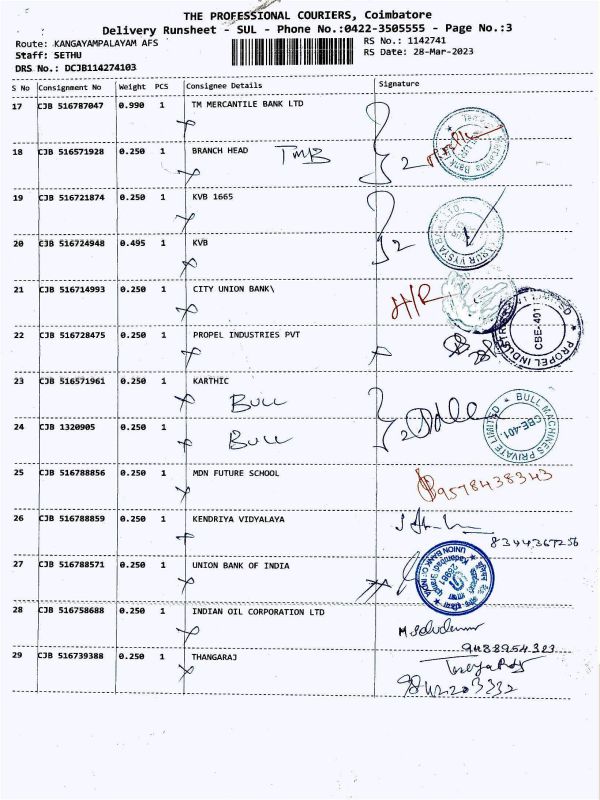 THE PROFESSIONAL COURIERS, Coimbatore
Delivery Runsheet - SUL - Phone No.:0422-3505555 - Page No.:3
Route: KANGAYAMPALAYAM AFS
RS No.: 1142741
Staff: SETHU
RS Date: 28-Mar-2023
DRS No.: DCJB114274103
S No Consignment No Weight PCS Consignee Details Signature
17 CJB 516787047 0.990 1 TM MERCANTILE BANK LTD
18 CJB 516571928 0.250 1 BRANCH HEAD TMB 2
19 CJB 516721874 0.250 1 KVB 1665
20 CJB 516724948 0.495 1 KVB 2
21 CJB 516714993 0.250 1 CITY UNION BANK\ H/R
22 CJB 516728475 0.250 1 PROPEL INDUSTRIES PVT
PROPEL INDUSTRIES PRIVATE LIMITED
23 CJB 516571961 0.250 1 KARTHIC
BULL
24 CJB 1320905 0.250 1 BULL 2
BULL MACHINES PRIVATE LIMITED
CBE-401
25 CJB 516788856 0.250 1 MDN FUTURE SCHOOL 9578438343
26 CJB 516788859 0.250 1 KENDRIYA VIDYALAYA
8344367256
27 CJB 516788571 0.250 1 UNION BANK OF INDIA
UNION BANK OF INDIA
28 CJB 516758688 0.250 1 INDIAN OIL CORPORATION LTD
29 CJB 516739388 0.250 1 THANGARAJ